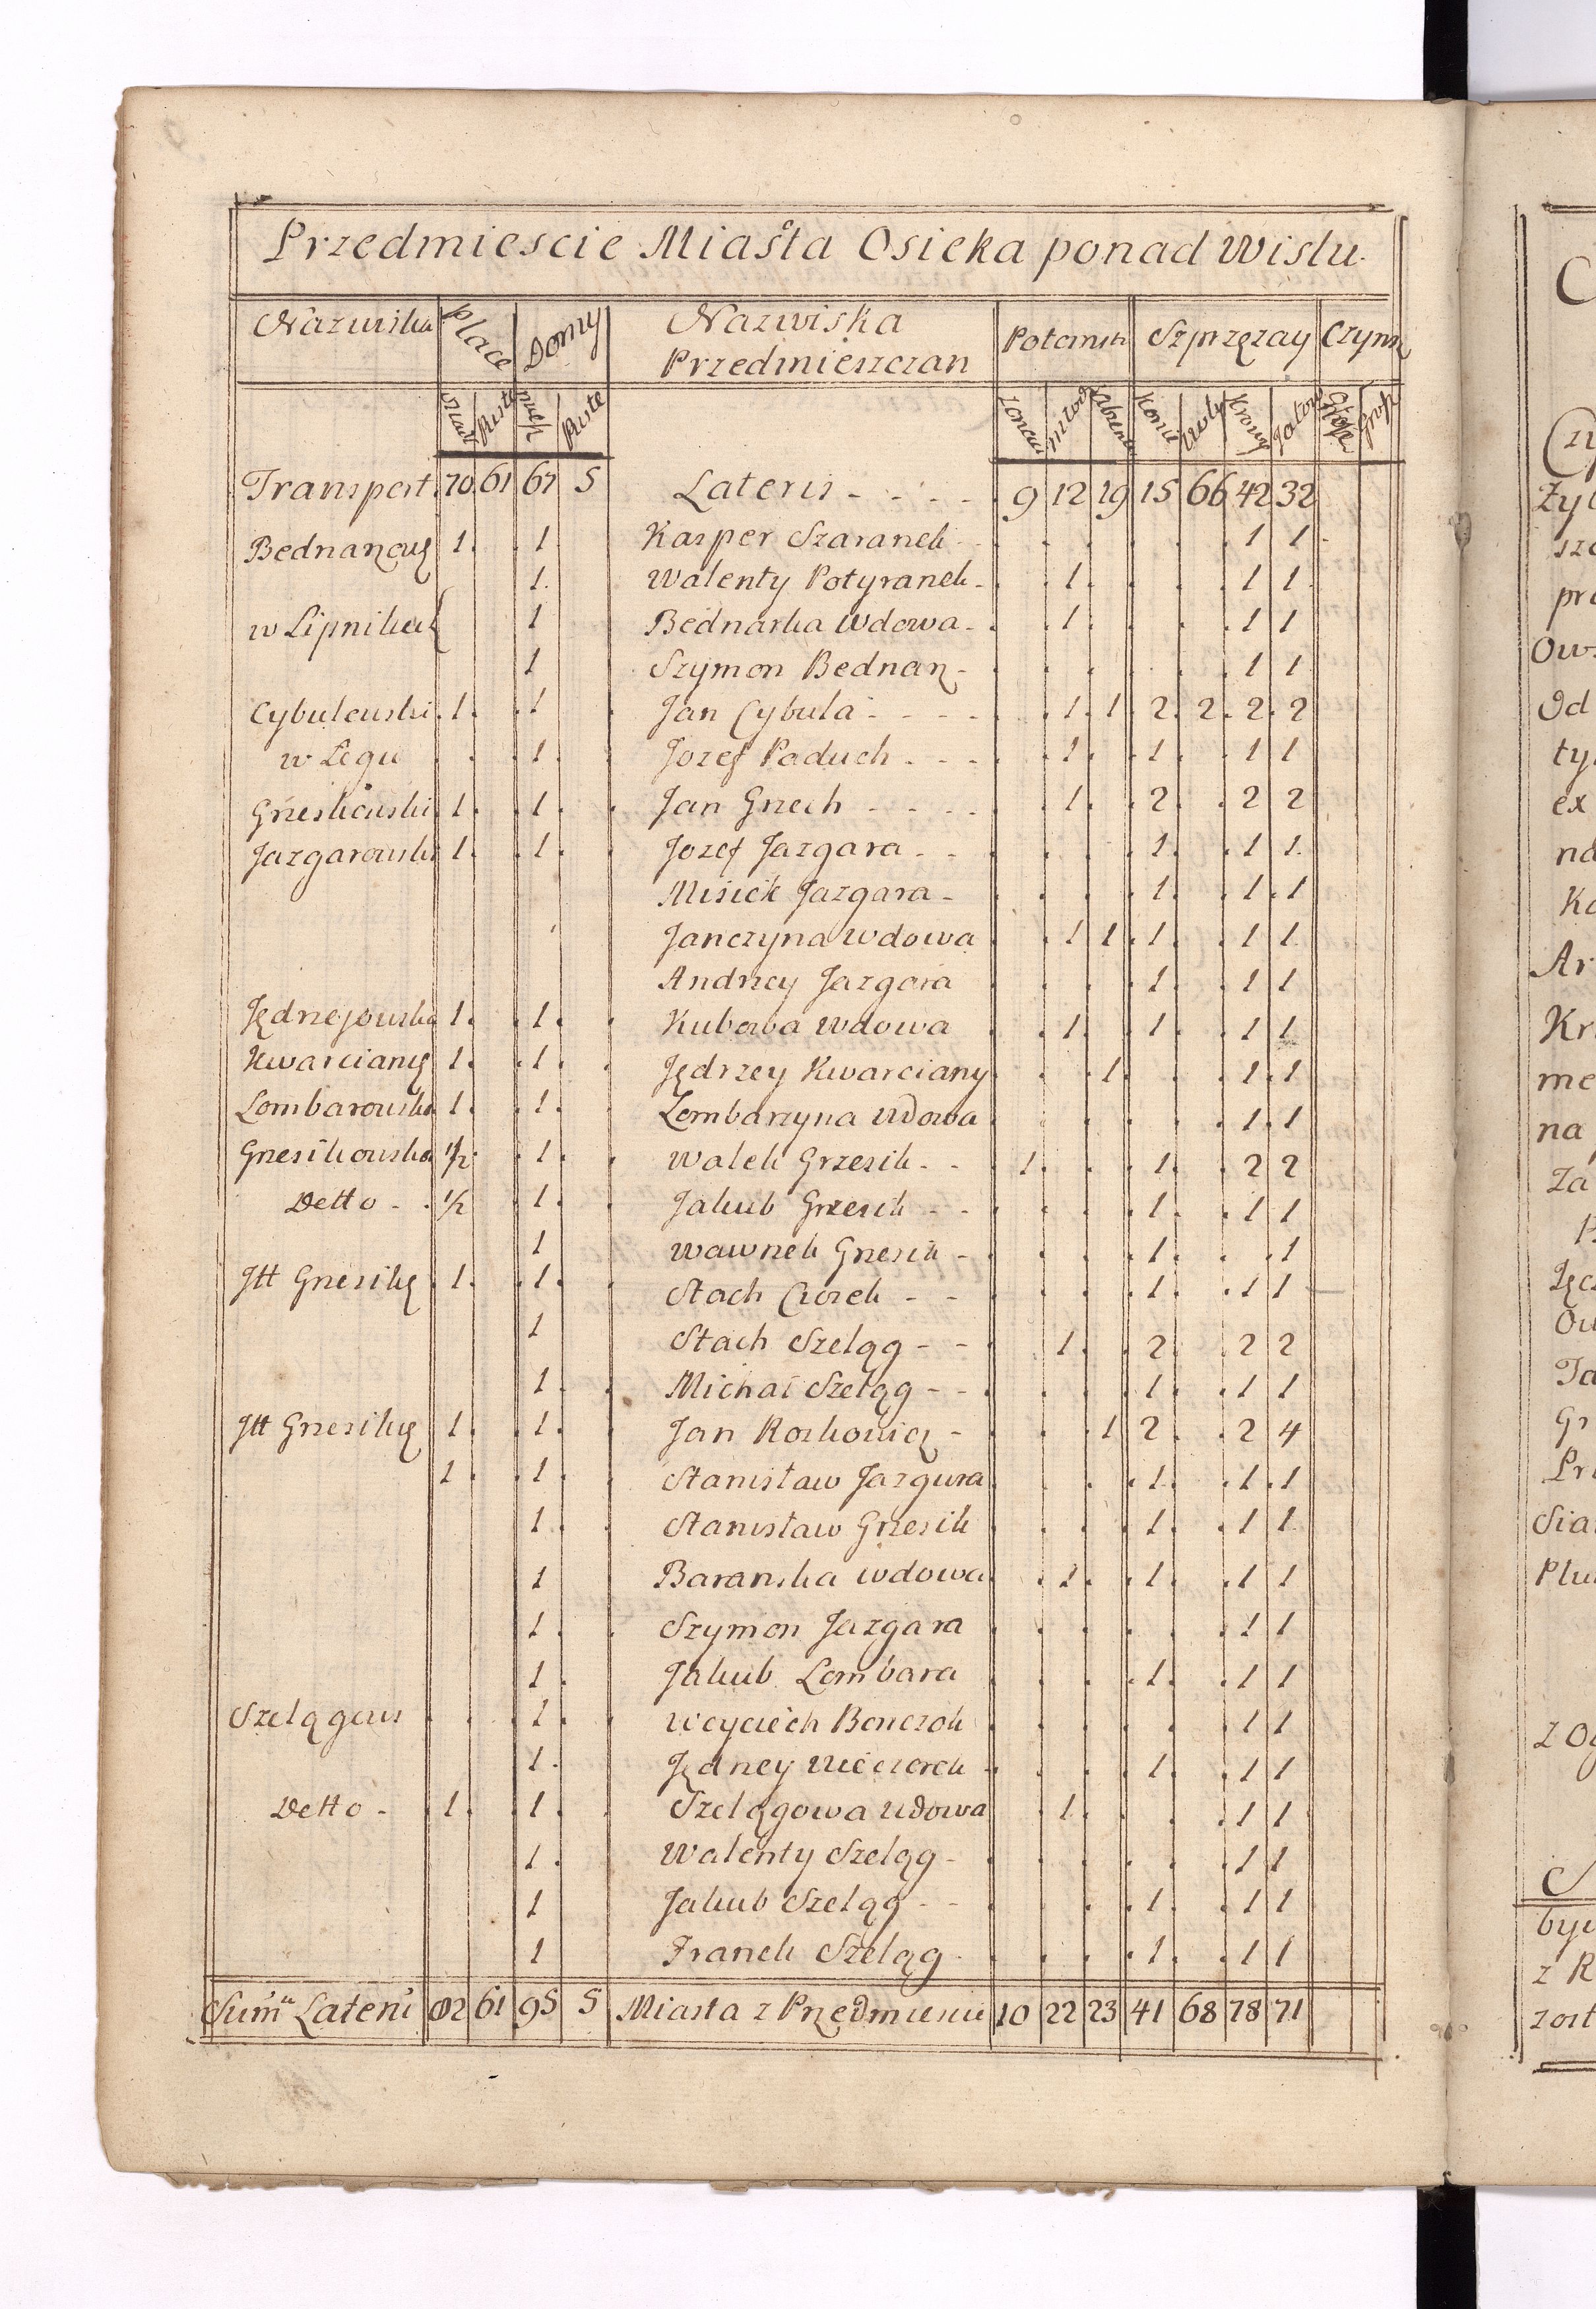 Przedmiescie Miasta Osieka ponad Wisłu.
Nazwiska Place Domy Nazwiska Przedmieszczan Potomst Szprzęzay Czynsz
Puste Puste Konie Woły Krowy Jałow Grosz
Transport. 70 61 67 5 Lateris - - - - 9 12 19 15 66 42 32
Bednarzow 1. 1 Kasper Szaranek 1 1
1. Walenty Potyranek - 1 1 1
w Lipnikach 1 Bednarka Wdowa - 1 1 1
1 Szymon Bednarz - 1 1
Cybulewski 1. 1 Jan Cybula - - - - 1 1 2 2 2 2
w Łęgu 1 Jozef Paduch - - - 1 1 1 1
Grzeskowski 1. 1. Jan Grzech - - - - 1 2 2 2
Jazgarowski 1. 1. Jozef Jazgara - - 1 1 1
Misiek Jazgara - 1 1 1
Janczyna Wdowa 1 1 1 1 1
Andrzey Jazgara 1 1 1
Jędrzejowska 1. 1. Kubowa Wdowa 1 1 1 1
Kwarciany 1. 1. Jędrzey Kwarciany 1 1 1
Lombarowska 1. 1. Lombarzyna Wdowa 1 1
Grzesikowska 1/2 1. Walek Grzesik - - 1 1 2 2
Detto - 1/2 1. Jakub Grzesik - - 1 1 1
1 Wawrzek Grzesik - 1 1
Itt Grzesikę 1. 1. Stach Ciozek - - 1 1 1
1 Stach Szeląg - - 1 2 2 2
1. Michał Szeląg - - 1 1 1
Itt Grzesikę 1. 1. Jan Roskowicz - 1 2 2 4
1. 1. Stanisław Jazgura 1 1 1
1. Stanisław Grzesik 1 1 1
1 Baranska Wdowa 1 1 1 1
1. Szymon Jazgara 1 1
1. Jakub Lombara 1 1 1
Szelągows 1. Woyciech Bonczok 1 1
1. Jędrzey Wieczorek - 1 1 1
Detto - 1. 1. Szelągowa Wdowa 1 1 1
1. Walenty Szeląg - 1 1
1 Jakub Szeląg - - 1 1 1
1 Franek Szeląg - 1 1 1
Suma Lateri 82 61 95 5 Miasta z Przedmiesciem 10 22 23 41 68 78 71